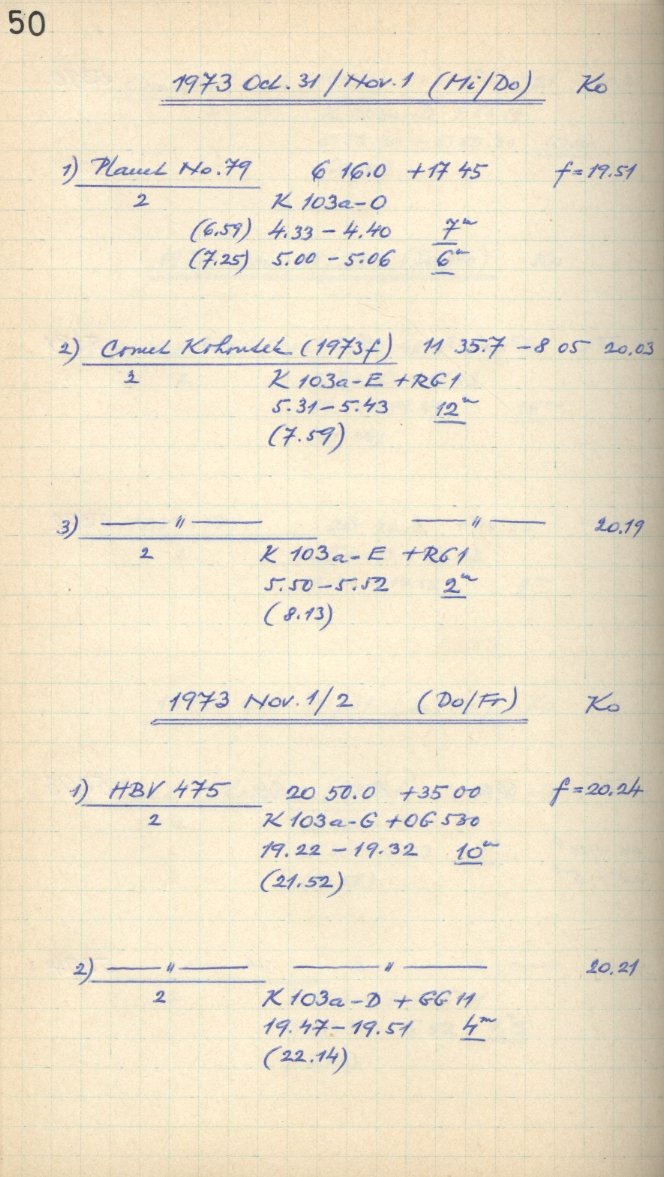 50
1973 Oct. 31/Nov. 1 (Mi/Do) Ko
1) Planet No. 79 6 16.0 +17 45 f = 19.51
2 K 103a-O
(6.59) 4.33 – 4.40 7ᵐ
(7.25) 5.00 – 5.06 6ᵐ
2) Comet Kohoutek (1973f) 11 35.7 –8 05 20.03
2 K 103a-E + RG1
5.31 – 5.43 12ᵐ
(7.59)
3) —— " —— —— " —— 20.19
2 K 103a-E + RG1
5.50 – 5.52 2ᵐ
(8.13)
1973 Nov. 1/2 (Do/Fr) Ko
1) HBV 475 20 50.0 +35 00 f = 20.24
2 K 103a-G + OG 530
19.22 – 19.32 10ᵐ
(21.52)
2) —— " —— —— " —— 20.21
2 K 103a-D + GG 11
19.47 – 19.51 4ᵐ
(22.14)